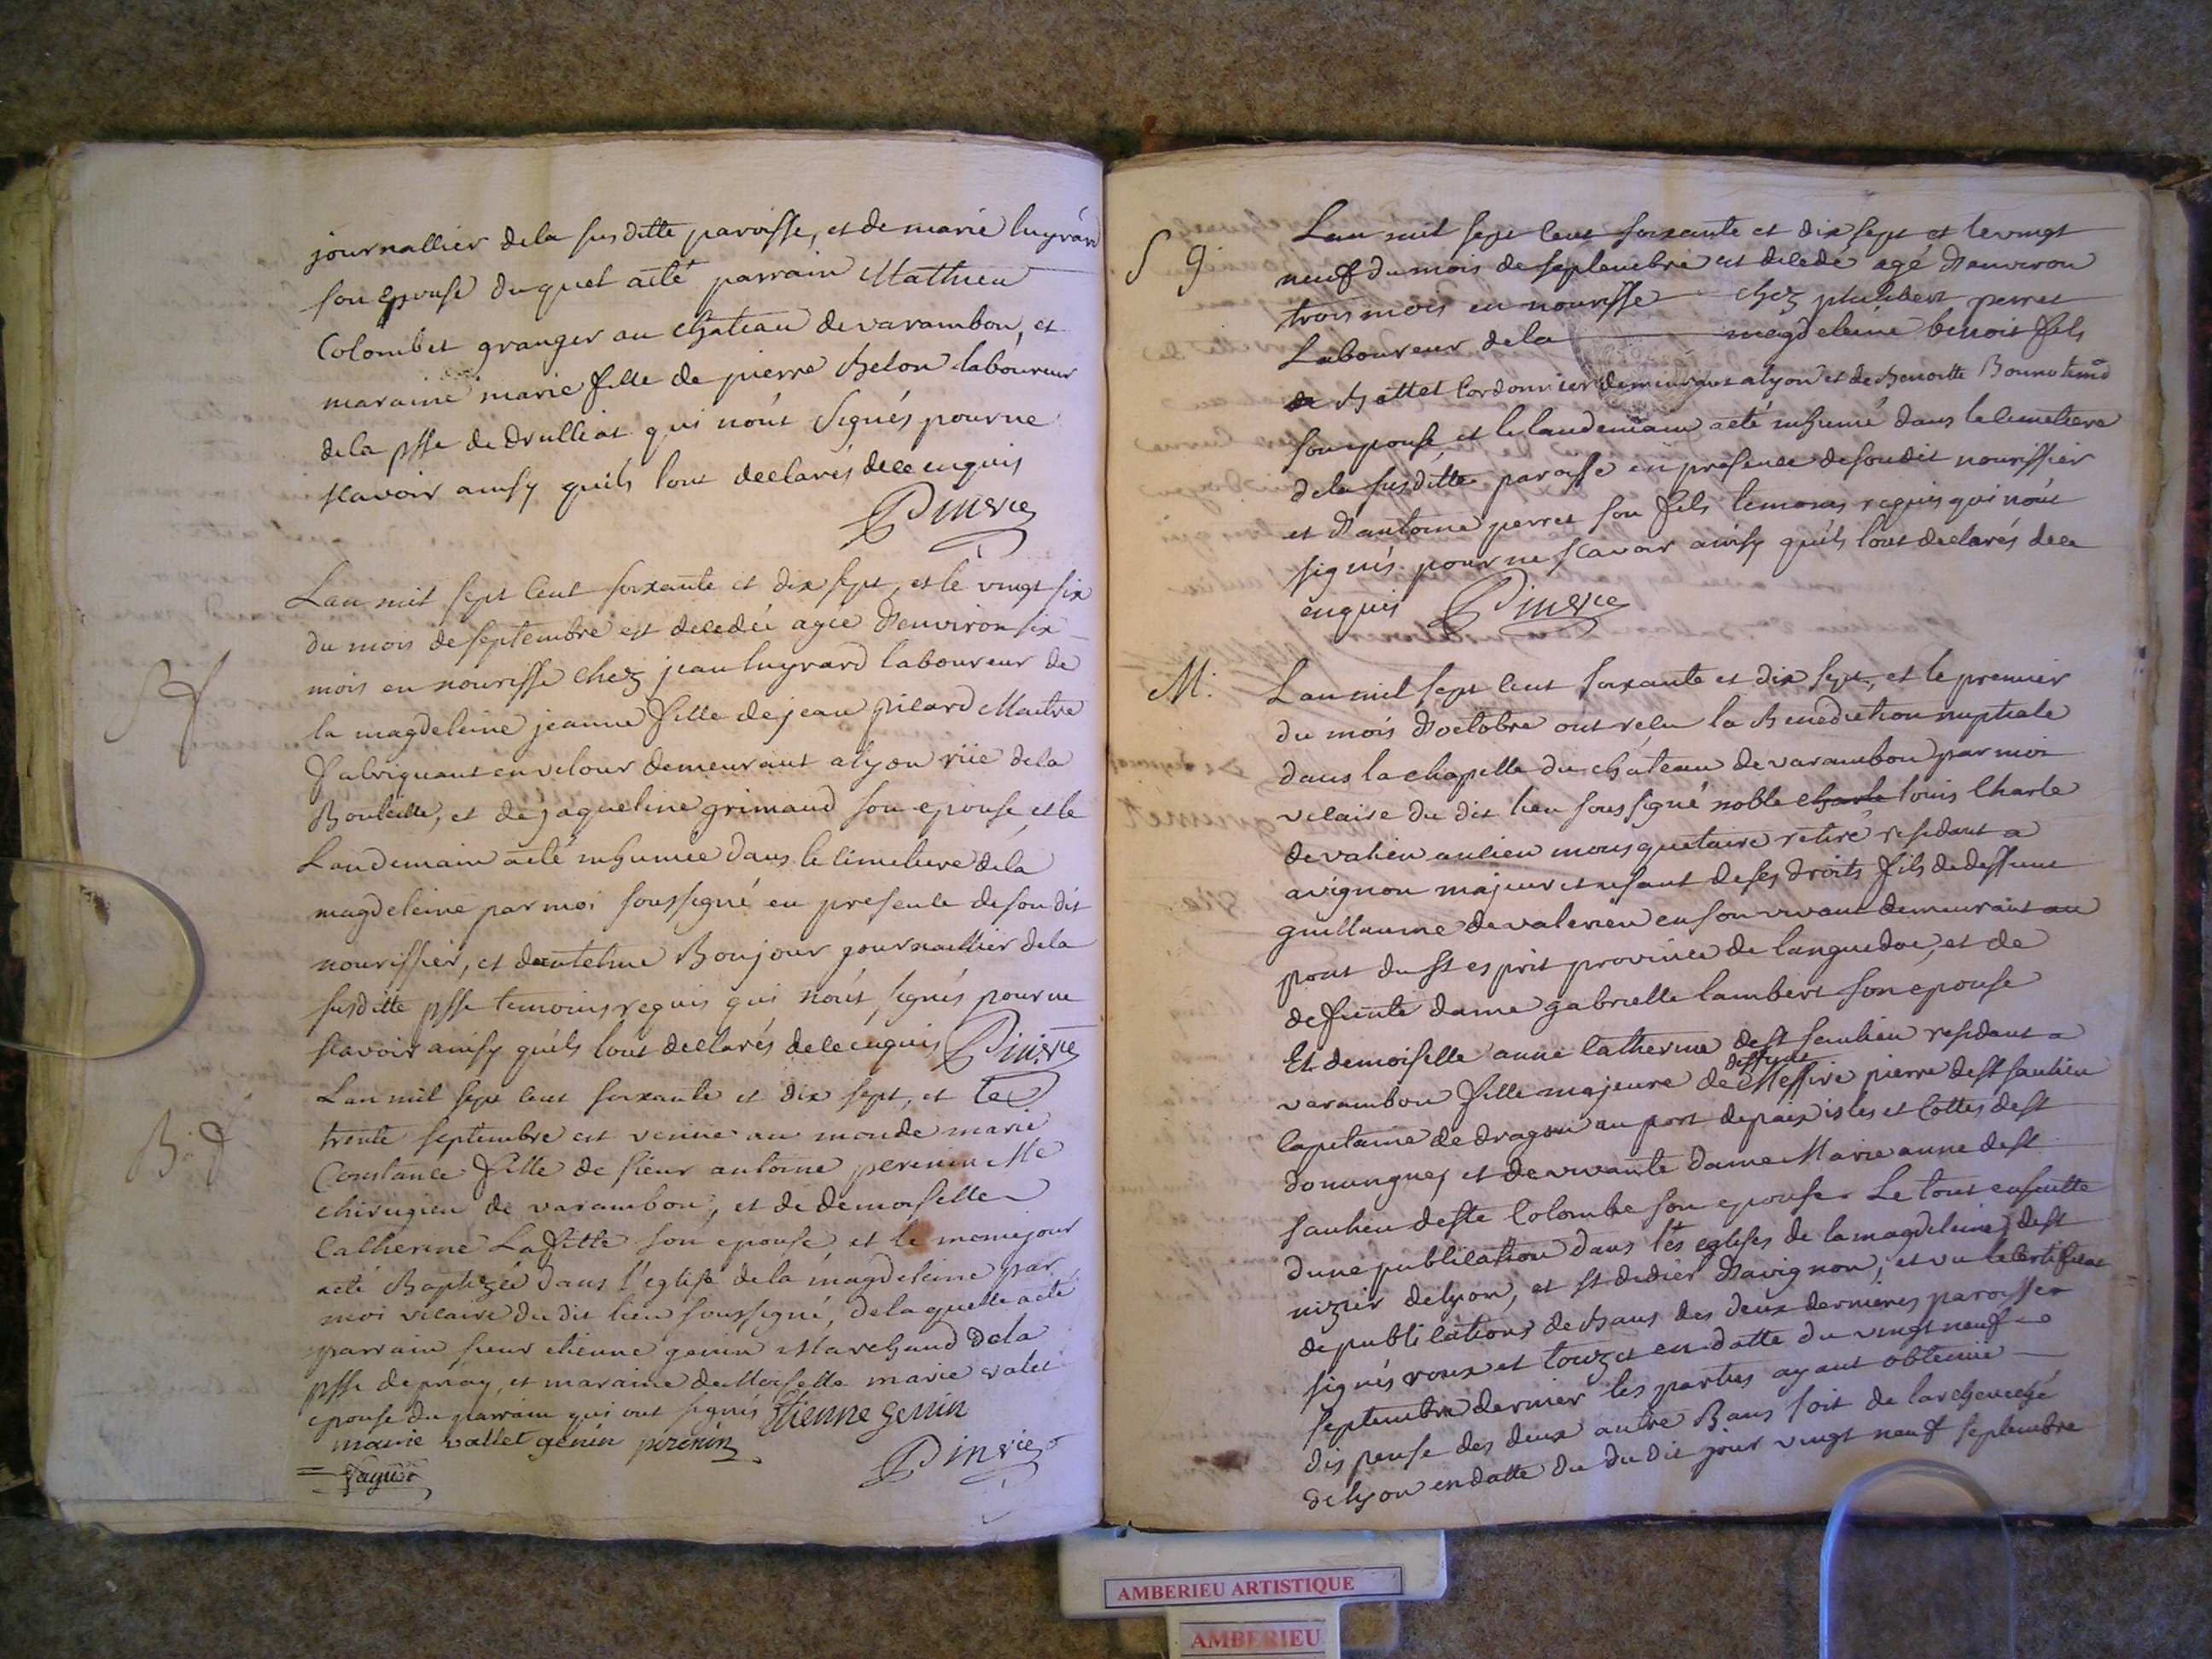 journallier dela susditte paroisse, et de marie luyrard
son epouse duquel a eté parrain Mathieu
Colombet granger au chateau de varambon, et
maraine marie fille de pierre Belon laboureur
dela psse de druilliat qui nont signés pour ne
scavoir ainsy quils lont declarés de ce enquis
Pinerie
Lan mil sept cent soixante et dix sept, et le vingt six
du mois de septembre est decedée agée d'environ six
mois en nourisse chez jean luyrard laboureur de
la magdeleine jeanne fille de jean picard Maitre
fabriquant en velour demeurant a lyon rüe dela
Bouteille, et de jaqueline grimaud son epouse, et le
Landemain a eté inhumée dans le cimetiere dela
magdeleine par moi soussigné en presence de son dit
nourissier, et Bonjour journallier dela
susditte psse temoins requis qui nont signés pour ne
scavoir ainsy quils lont declarés de ce enquis Pinerie
Lan mil sept cent soixante et dix sept, et le
trente septembre est venue au monde marie
Constance fille de sieur antoine perenin Me
chirugien de varambon, et de demoiselle
Catherine Lafitte son epouse et le meme jour
a eté Baptizée dans l'eglise dela magdeleine par
moi vicaire du dit lieu soussigné, de laquelle a eté
parrain sieur etienne genin Marchand dela
psse de priay, et maraine demoiselle marie valet
epouse du parrain qui ont signés Etienne genin
marie vallet genin perenin
Pinerie
S g.
Lan mil sept cent soixante et dix sept et le vingt
neuf du mois de septembre est decedé agé d'environ
trois mois en nourisse chez philibert perret
Laboureur dela magdeleine benoit fils
de Battet Cordonnier demeurant a lyon et de Benoitte
son epouse, et le landemain a eté inhumé dans le cimetiere
dela susditte paroisse en presence de son dit nourissier
et d'antoine perret son fils temoins requis qui nont
signés pour ne scavoir ainsy quils lont declarés de ce
enquis Pinerie
M.
Lan mil sept cent soixante et dix sept, et le premier
du mois d'octobre ont recu la Benediction nuptiale
dans la chapelle du chateau de varambon par moi
vicaire du dit lieu soussigné noble charle louis Charle
ancien mousquetaire retiré residant a
avignon majeur et usant de ses droits fils de deffunt
guillaume de valerien en son vivant demeurant au
pont du st esprit province de languedoc, et de
defunte dame gabrielle lambert son epouse
Et demoiselle anne Catherine de st saulieu residant a
varambon fille majeure de deffunt Messire pierre de st saulieu
Capitaine de dragon au port de paix isles et Cottes de st
domingue, et de vivante dame Marie anne de st
saulieu de ste Colombe son epouse. Le tout ensuitte
dune publication dans les eglises de la magdeleine, de st
nizier de lyon, et st didier d'avignon, et vu le certificat
de publications de Bans des deux dernieres paroisses
signés roux et en datte du vingt neuf
septembre dernier les parties ayant obtenüe
dispense des deux autre Bans soit de larcheveché
de lyon en datte du du dit jour vingt neuf septembre
AMBERIEU ARTISTIQUE
AMBERIEU